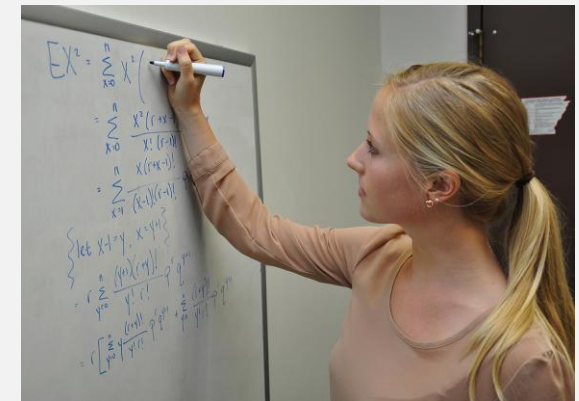 EX² = Σ_{x=0}^{n} x² (
= Σ_{x=0}^{n} x²(r+x-1) / x!(r-1)!
= Σ_{x=1}^{n} x(r+x-1)! / (x-1)!(r-1)!
{let x-1=y, x=y+1}
= r Σ_{y=0}^{n} (y+1)(r+y)! / y! r! p^r q^{y+1}
= r [ Σ_{y=0}^{n} y (r+y)! / y! r! p^r q^{y+1} + Σ_{y=0}^{n} (r+y)! / y! r! p^r q^{y+1}